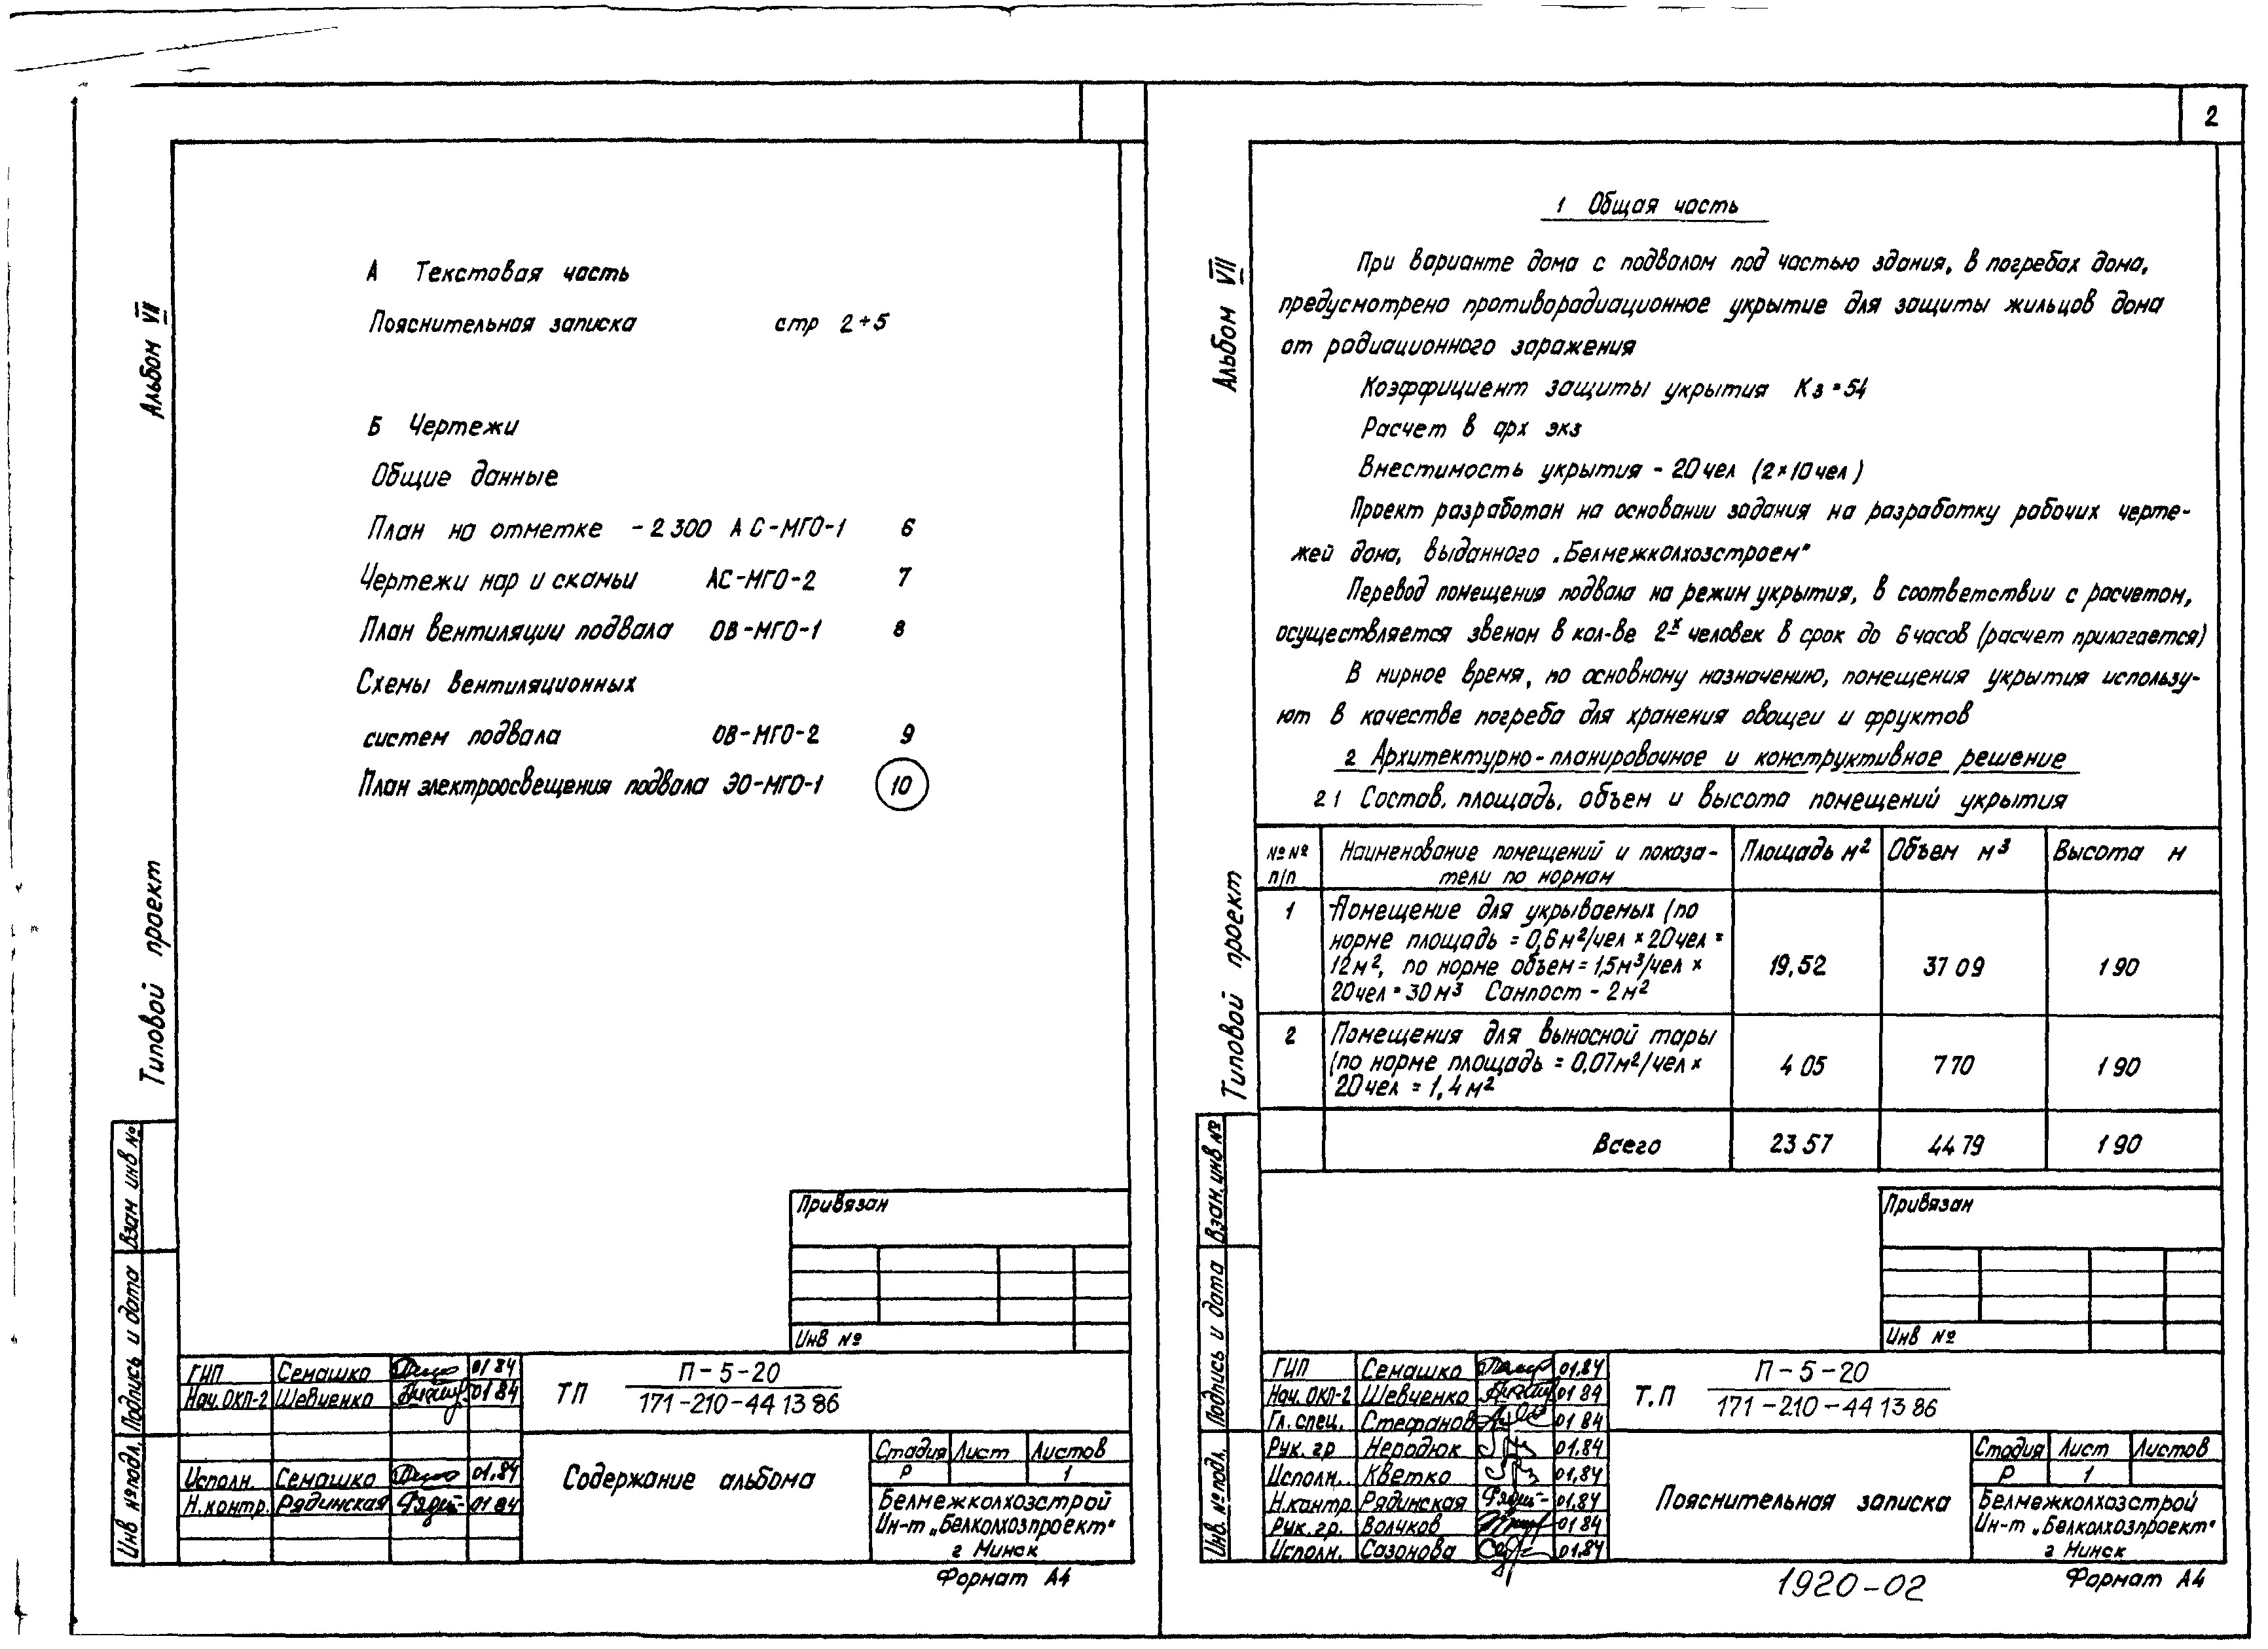 Альбом VII
Типовой проект
А Текстовая часть
Пояснительная записка стр 2÷5
Б Чертежи
Общие данные
План на отметке -2 300 АС-МГО-1 6
Чертежи нар и скамьи АС-МГО-2 7
План вентиляции подвала ОВ-МГО-1 8
Схемы вентиляционных
систем подвала ОВ-МГО-2 9
План электроосвещения подвала ЭО-МГО-1 10
Взам инв №
Подпись и дата
Инв № подл.
Привязан
Инв №
ГИП Семашко 01 84
Нач. ОКП-2 Шевченко 01 84
Исполн. Семашко 01.84
Н.контр. Рядинская 01 84
ТП П-5-20
171-210-44 13 86
Содержание альбома
Стадия Лист Листов
Р 1
Белмежколхозстрой
Ин-т „Белколхозпроект"
г Минск
Формат А4
2
Альбом VII
Типовой проект
1 Общая часть
При варианте дома с подвалом под частью здания, в погребах дома,
предусмотрено противорадиационное укрытие для защиты жильцов дома
от радиационного заражения
Коэффициент защиты укрытия Кз=54
Расчет в арх экз
Вместимость укрытия - 20 чел (2×10 чел)
Проект разработан на основании задания на разработку рабочих черте-
жей дома, выданного „Белмежколхозстроем"
Перевод помещения подвала на режим укрытия, в соответствии с расчетом,
осуществляется звеном в кол-ве 2х человек в срок до 6 часов (расчет прилагается)
В мирное время, по основному назначению, помещения укрытия использу-
ют в качестве погреба для хранения овощеи и фруктов
2 Архитектурно-планировочное и конструктивное решение
2 1 Состав, площадь, объем и высота помещений укрытия
№№ Наименование помещений и показа- Площадь м² Объем м³ Высота м
п/п тели по нормам
1 Помещение для укрываемых (по
норме площадь = 0,6 м²/чел × 20 чел =
12 м², по норме объем = 1,5 м³/чел × 19,52 37 09 1 90
20 чел = 30 м³ Санпост - 2 м²
2 Помещения для выносной тары
(по норме площадь = 0,07 м²/чел × 4 05 7 70 1 90
20 чел = 1,4 м²
Всего 23 57 44 79 1 90
Взам. инв №
Подпись и дата
Инв. № подл.
Привязан
Инв №
ГИП Семашко 01.84
Нач. ОКП-2 Шевченко 01 84
Гл. спец. Стефанов 01 84
Рук. гр Неродюк 01.84
Исполн. Кветко 01,84
Н.контр. Рядинская 01.84
Рук. гр. Волчков 01 84
Исполн. Сазонова 01.84
Т.П П-5-20
171-210-44 13 86
Пояснительная записка
Стадия Лист Листов
Р 1
Белмежколхозстрой
Ин-т „Белколхозпроект"
г Минск
1920-02 Формат А4